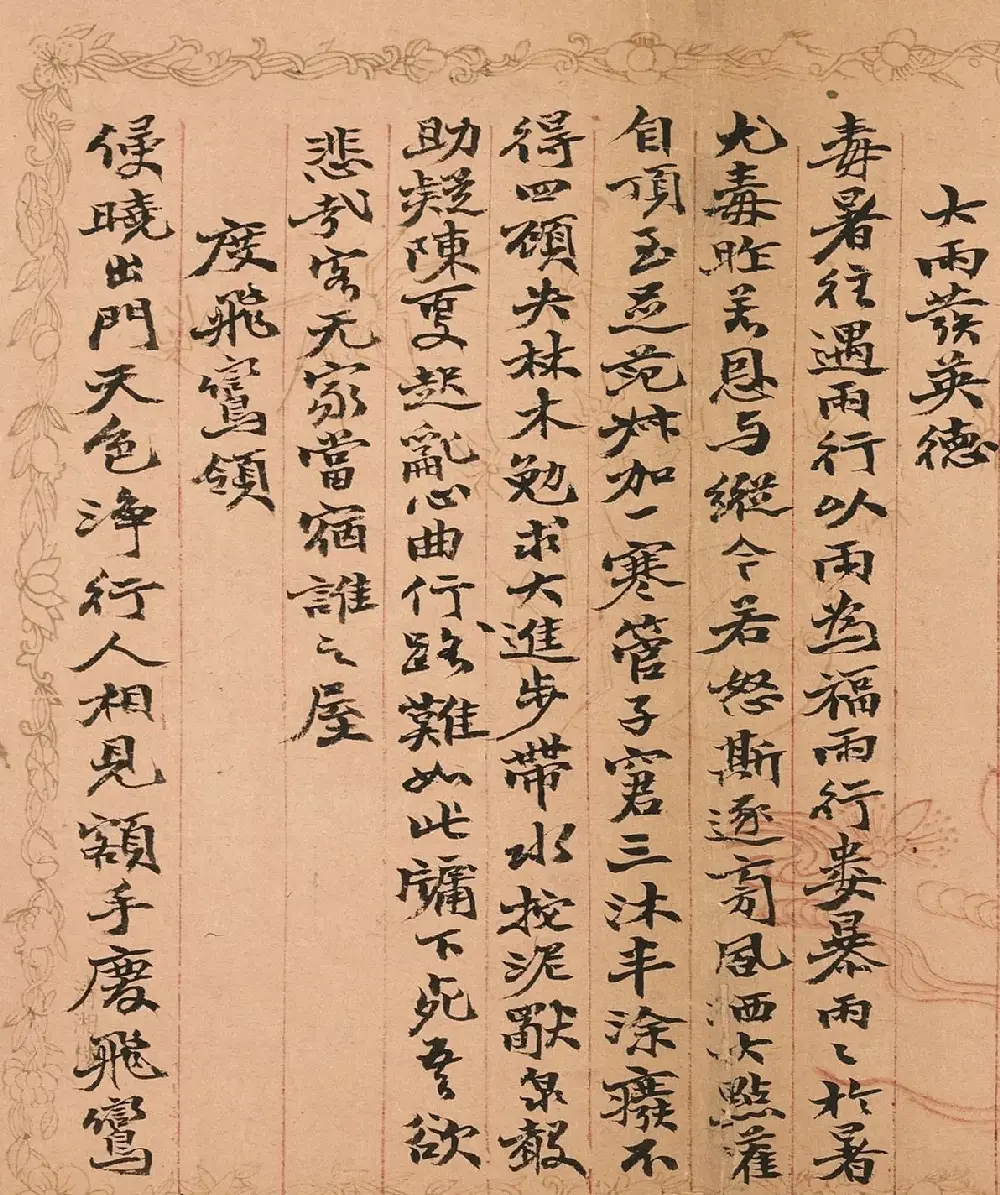 大雨發英德
毒暑往遇雨行以雨為福雨行婁暴雨〻於暑
尤毒昨若恩与縱今若怒斯逐雱風洒大點灌
自頂至足范叔加一寒管子窘三沐半涂癈不
得四顧失林木勉求大進步帶水挖泥猒泉穀
助凝陳戛起亂心曲行路難如此牖下死吾欲
悲哉客无家當宿誰之屋
度飛鸞嶺
侵曉出門天色淨行人相見額手慶飛鸞